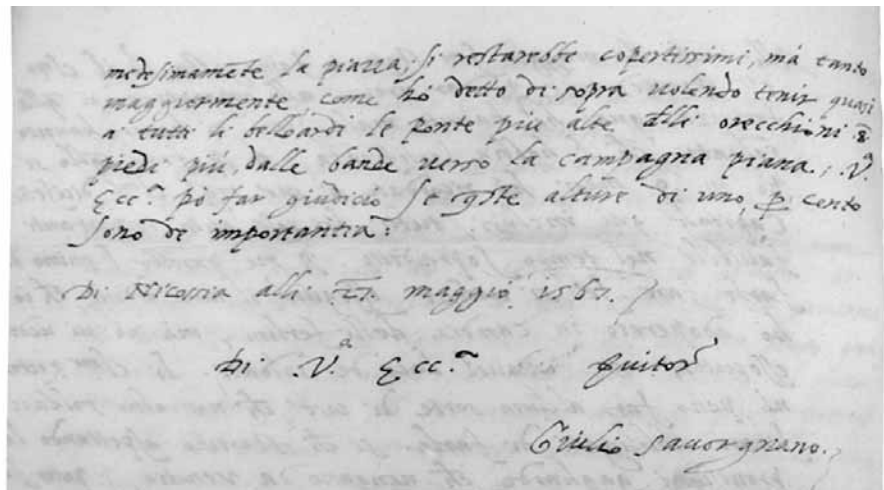 medesimamēte la piazza, si restarebbe copertissimi, mà tanto
maggiormente come hò detto di sopra uolendo tenir quasi
a tutti li belloardi le ponte più alte dalli orecchioni .8.
piedi più, dalle bande uerso la campagna piana, .V.ª
Ecc.ª pò far giudicio se q̃ste alture di uno, p̱ cento
sono de importantia:
Di Nicossia alli .27. maggio 1567.
Di .V.ª Ecc.ª seruitorᵉ
Giulio Sauorgnano.